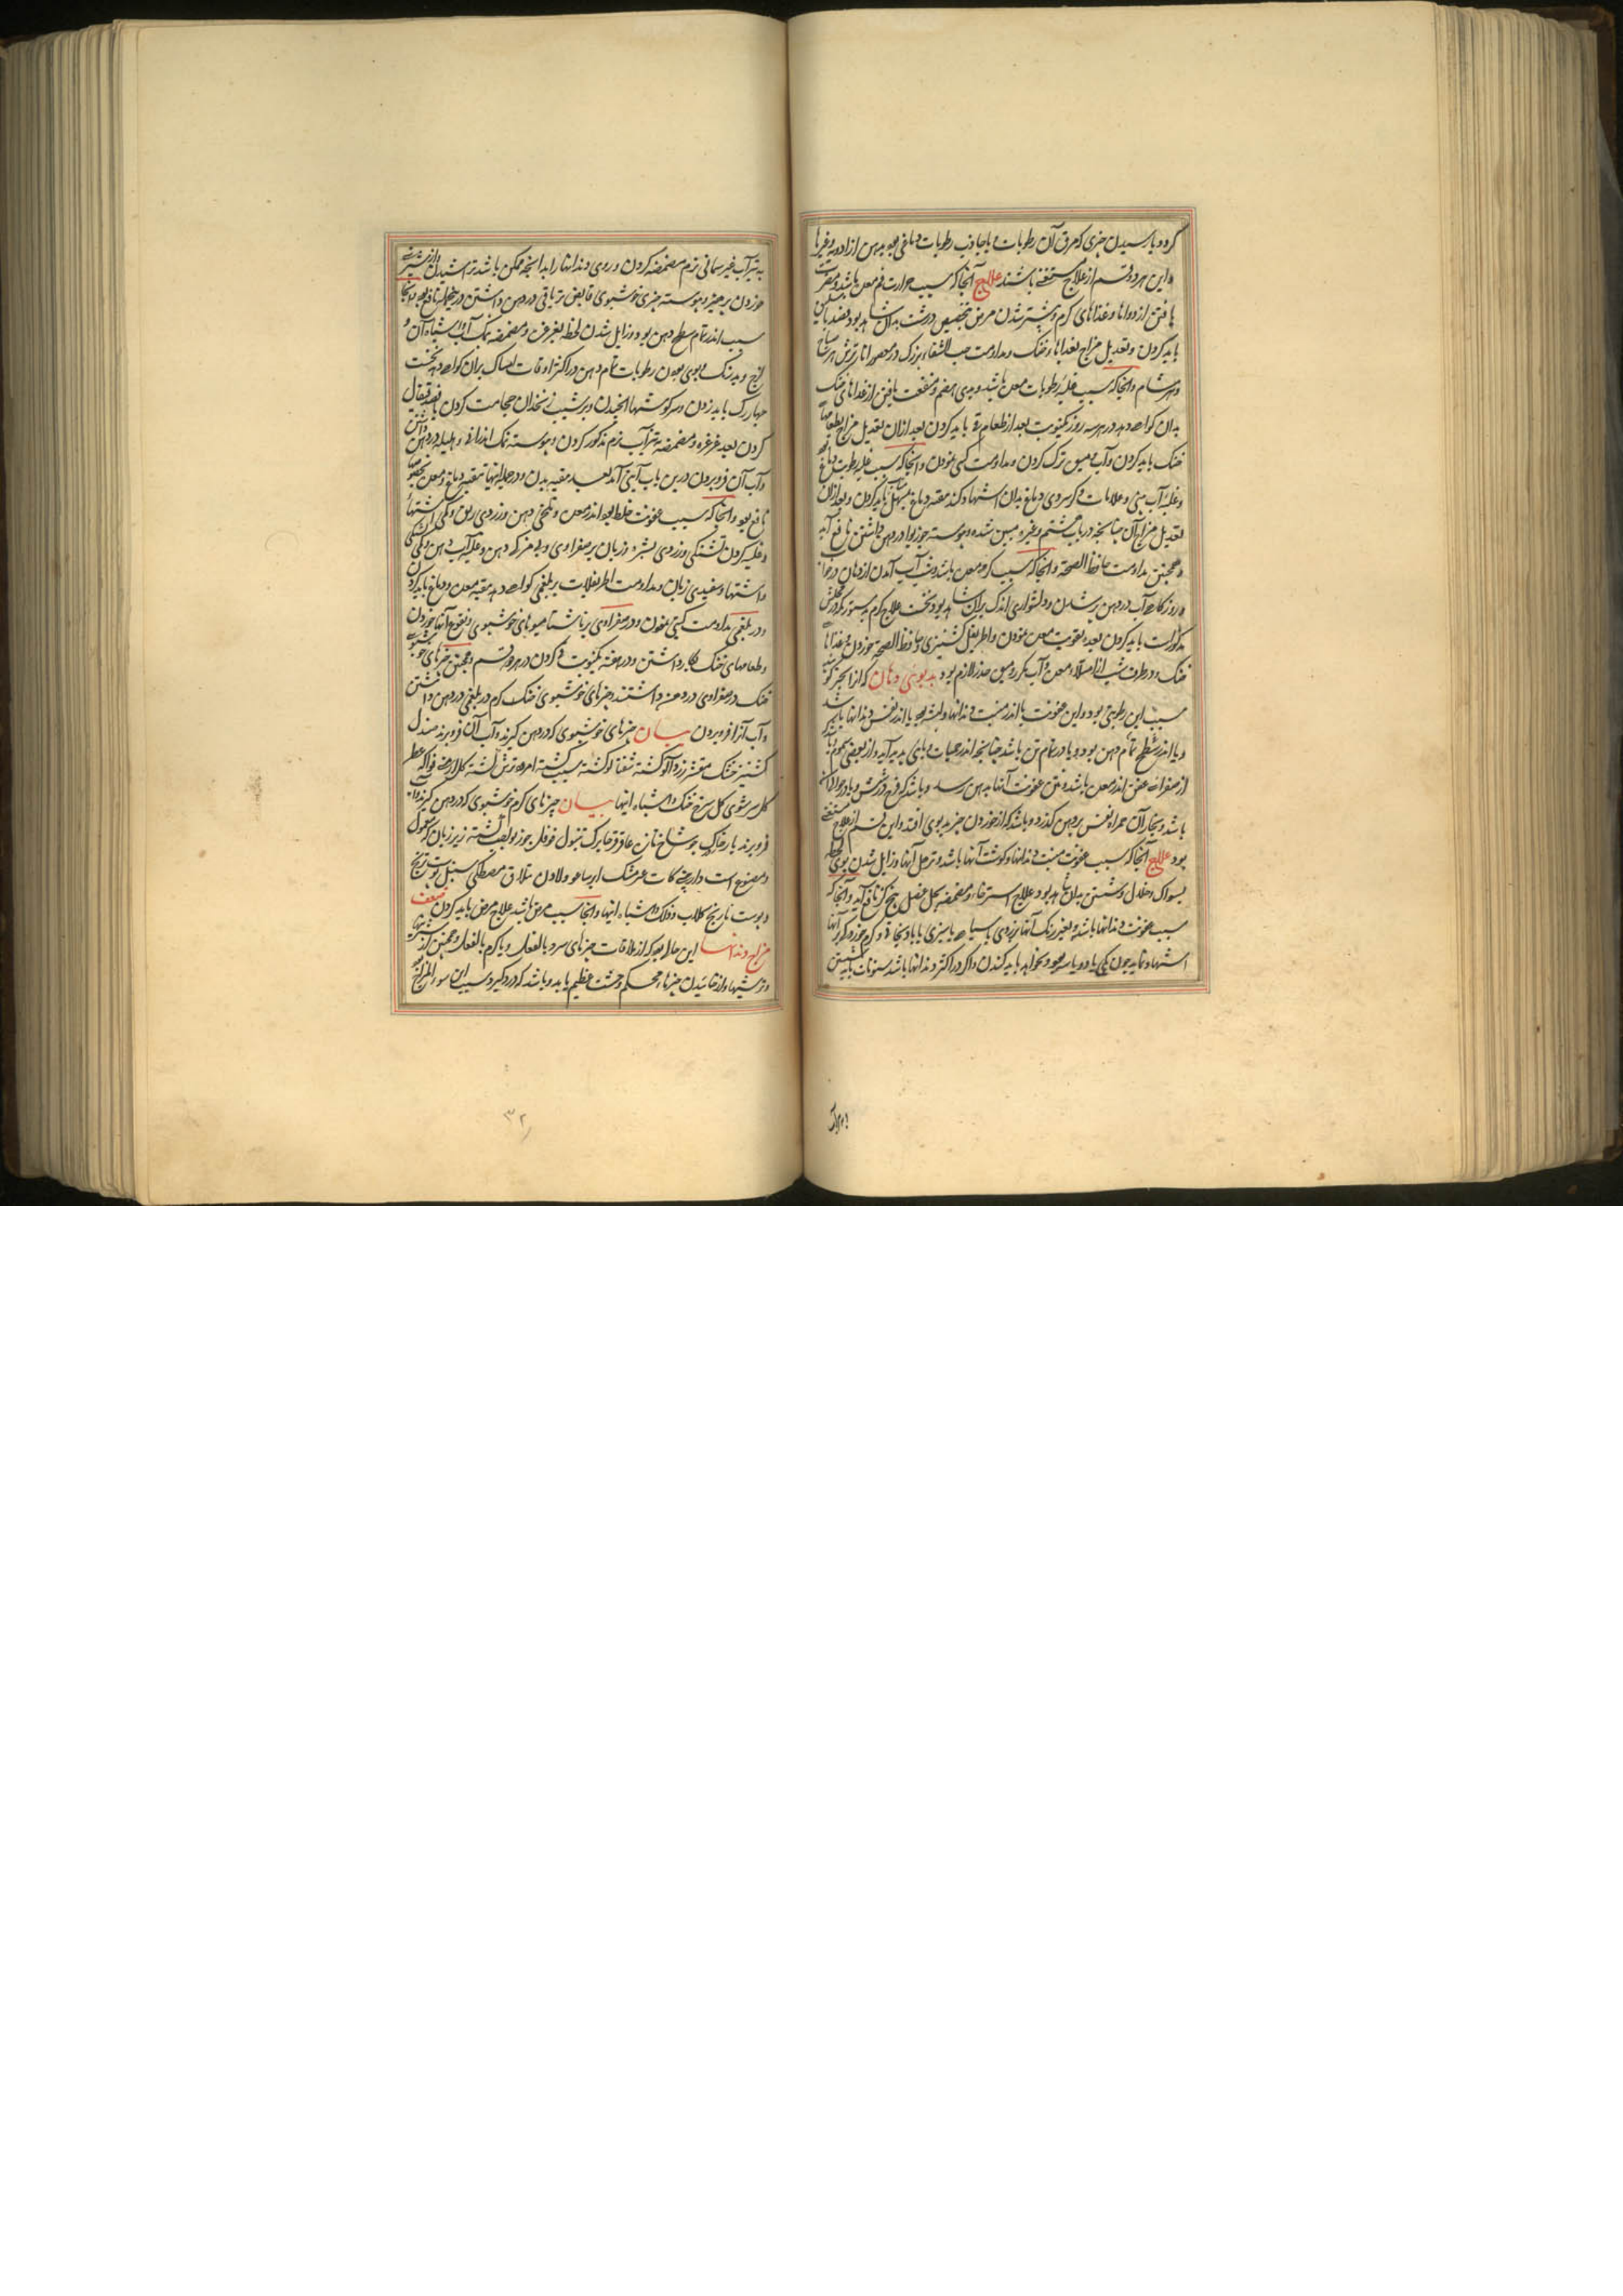 گردد یا رسیدن چیزی که مرق آن رطوبات و یا جاذب رطوبات دماغی بود بدهن از ادویه و غیرها
و این هر دو قسم از علاج مستغنی باشند علاج آنجا که سبب حرارت فم معده باشد و مضرت
یافتن از دواها و غذاهای گرم و بیشتر شدن مرض بدان شاهد بود فصد باسلیق
باید کردن و تعدیل مزاج بغذاهاء خنک و مداومت حب الشفاء بزرگ در عصیر انار ترش هر صباح
و هر شام و آنجا که سبب غلبه رطوبات معده باشد و بدی هضم و منفعت یافتن از غذاهای خشک
بدان گواهی دهد در هر سه روز یکنوبت بعد از طعام قی باید کردن بعد از آن تعدیل مزاج بطعامهاء
خشک باید کردن و آب و میوه ترک کردن و مداومت نمودن و آنجا که سبب غلبه رطوبت دماغ
و غلبه آب بینی و علامات دیگر سردی دماغ بدان استشهاد کند تنقیه دماغ بمسهل باید کردن و بعد از آن
تعدیل مزاج آن چنانچه در باب هشتم و غیره مبین شده و پیوسته جوزبوا در دهن داشتن نافع آید
و همچنین مداومت حافظ الصحة و آنجا که سبب کرم معده باشد و شب آب آمدن از دهان در خواب
و روز گاهی آب در دهن پر شدن و دلشواری اندک بدان شاهد بود نخست علاج کرم بدستور که در محلش
مذکور است باید کردن بعده تقویت معده نمودن و اطریفل کشنیزی و حافظ الصحة خوردن و غذاهاء
خشک و در طرف شب از امتلاء معده و آب و میوه حذر لازم بود بدبوئی دهان که از آن بخر گویند
سبب این رطوبتی بود و این عفونت یا اندر منبت دندانها و لثه بود یا اندر نفس دندانها باشد
و یا اندر سطح تمام دهن بود و یا در تمام تن باشد چنانچه اندر حمیات وبائی پدید آید و از بعضی سموم یا
از صفراء عفن اندر معده باشد و نتن عفونت آنها بدهن رسد و باشد که قرحه در شش و یا در حوالی آن
باشد و بخار آن همراه نفس بر دهن گذرد و باشد که از خوردن چیز بدبوی افتد و این قسم از علاج مستغنی
بود علاج آنجا که سبب عفونت منبت دندانها و گوشت آنها باشد و ترهل آنها و زایل شدن بوی لحظه
بسواک و خلال و شستن بدان شاهد بود علاج استرخاء و مضمضه بخل عنصل نافع آید و آنجا که
سبب عفونت دندانها باشد و تغیر رنگ آنها بزردی یا سیاهی یا سبزی
استشهاد نماید چون یکی یا دو یا سه بود و نخواهد باید کندن و اگر در اکثر دندانها باشد سنونات بایستن
به تیزآب غیر سمانی نرم مضمضه کردن و روی دندانها را بدانچه ممکن باشد تراشیدن و از شیرینی
خوردن پرهیز و پیوسته چیزی خوشبوی قابض تریاقی در دهن داشتن درین جمله نافع بود و آنجا
سبب اندر تمام سطح دهن بود و زایل شدن لحظه بغرغره و مضمضه نمک آب و اشباه آن و
لزج و بدرنگ و بوی بودن رطوبات تمام دهن در اکثر اوقات امساک بران گواهی دهد نخست
چهاررگ باید زدن و سر گوشتها و بر شیب زنخدان حجامت کردن یا فصد قیفال
کردن بعد غرغره و مضمضه تیزآب نرم مذکور کردن و پیوسته نمک اندرانی و هلیله در دهن داشتن
و آب آن فرو بردن درین باب آیتی آمد بعد تنقیه بدن و در جمله اینها تنقیه دماغ و معده بخصوصها
نافع بود و آنجا که سبب عفونت خلط بود اندر معده و تلخی دهن و زردی ریق و کمی اشتها
و غلبه کردن تشنگی و زردی بشره و زبان بر صفراوی و بی مزگی دهن و غلبه آب دهن و کمی تشنگی
و اشتها و سفیدی زبان و مداومت اطریفلات بر بلغمی گواهی دهد تنقیه معده و دماغ باید کردن
و در بلغمی مداومت نمودن و در صفراوی بر ناشتا میوهای خوشبوی و نقوع آنها خوردن
و طعامهای خنک بکار داشتن و در هفته یکنوبت قی کردن در هر دو قسم و همچنین چیزهای خوشبوی
خنک در صفراوی در دهن داشتن و چیزهای خوشبوی خشک گرم در بلغمی در دهن داشتن
و آب آنرا فرو بردن بیان چیزهای خوشبوی که در دهن گیرند و آب آن فرو برند صندل
کشنیز خشک مقشر زردآلو کشته شفتالو کشته سیب کشته امرود ترش کشته گل ارمنی فواکه عطر
گل سرشوی گل سرخ خشک و اشباه اینها بیان چیزهای گرم خوشبوی که در دهن گیرند و آب
فرو برند عاقرقرحا برگ تنبول فوفل جوزبوا
و مصنوع است دارچینی کات عود مشک ایرسا هیل و لادن مصطکی سنبل پوست ترنج
و پوست نارنج گلاب و فلک و اشباه اینها و آنجا که سبب مرض باشد علاج مرض باید کردن ضعف
مزاج دندانها این حال بود که از ملاقات چیزهای سرد بالفعل و یا گرم بالفعل و همچنین از شیرینیها
و ترشیها و از خائیدن چیزهاء محکم وحشت عظیم یابد و باشد که درد گیرد و سبب این سوء المزاج
به تیزآب
۳۲